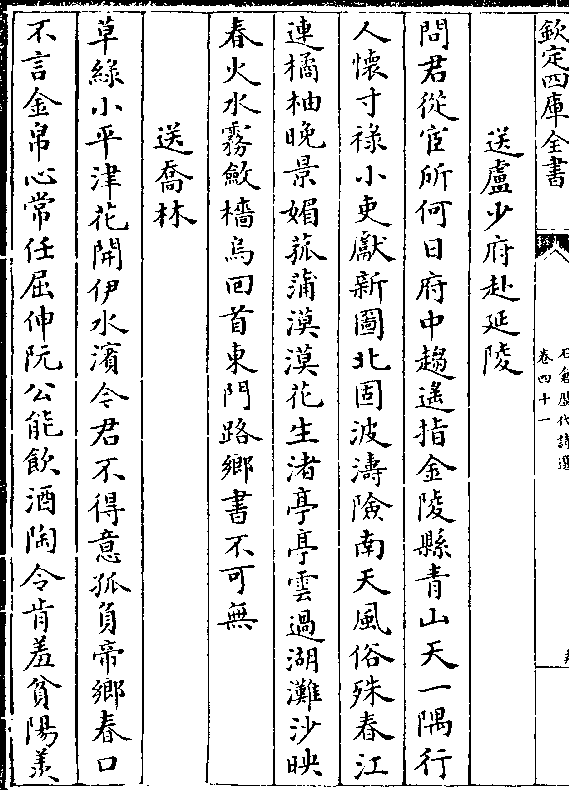 欽定四庫全書
石倉歷代詩選
卷四十一
送盧少府赴延陵
問君從宦所何日府中趨遙指金陵縣青山天一隅行
人懷寸祿小吏獻新圖北固波濤險南天風俗殊春江
連橘柚晚景媚菰蒲漠漠花生渚亭亭雲過湖灘沙映
春火水霧斂檣烏回首東門路鄉書不可無
送喬林
草綠小平津花開伊水濱今君不得意孤負帝鄉春口
不言金帛心常任屈伸阮公能飲酒陶令肯羞貧陽羨